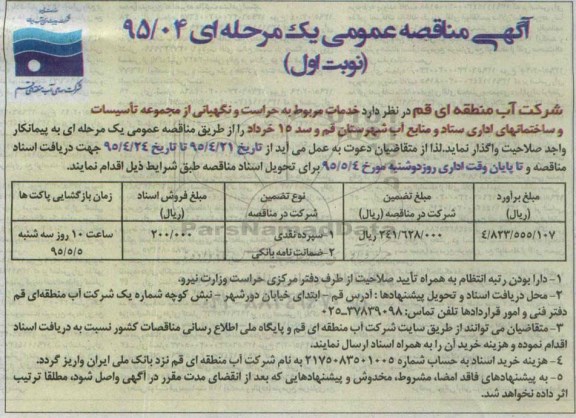 آگهی مناقصه عمومی یک مرحله ای ۹۵/۰۴
(نوبت اول)
شرکت آب منطقه ای قم در نظر دارد خدمات مربوط به حراست و نگهبانی از مجموعه تأسیسات
و ساختمانهای اداری ستاد و منابع آب شهرستان قم و سد ۱۵ خرداد را از طریق مناقصه عمومی یک مرحله ای به پیمانکار
واجد صلاحیت واگذار نماید. لذا از متقاضیان دعوت به عمل می آید از تاریخ ۹۵/۴/۲۱ تا تاریخ ۹۵/۴/۲۴ جهت دریافت اسناد
مناقصه و تا پایان وقت اداری روز دوشنبه مورخ ۹۵/۵/۴ برای تحویل اسناد مناقصه طبق شرایط ذیل اقدام نمایند.
مبلغ برآورد (ریال) مبلغ تضمین شرکت در مناقصه (ریال) نوع تضمین شرکت در مناقصه مبلغ فروش اسناد (ریال) زمان بازگشایی پاکت ها
۴/۸۲۳/۵۵۵/۱۰۷ ۲۴۱/۶۲۸/۰۰۰ ریال ۱- سپرده نقدی ۲۰۰/۰۰۰ ساعت ۱۰ روز سه شنبه
۲- ضمانت نامه بانکی ۹۵/۵/۵
ParsNamadData
۱- دارا بودن رتبه انتظام به همراه تأیید صلاحیت از طرف دفتر مرکزی حراست وزارت نیرو.
۲- محل دریافت اسناد و تحویل پیشنهادها: آدرس قم - ابتدای خیابان دورشهر - نبش کوچه شماره یک شرکت آب منطقه‌ای قم
دفتر فنی و امور قراردادها تلفن تماس: ۳۷۸۳۹۰۹۸-۰۲۵
۳- متقاضیان می توانند از طریق سایت شرکت آب منطقه ای قم و پایگاه ملی اطلاع رسانی مناقصات کشور نسبت به دریافت اسناد
اقدام نموده و هزینه خرید آن را به همراه اسناد ارسال نمایند.
۴- هزینه خرید اسناد به حساب شماره ۲۱۷۵۰۸۳۵۰۱۰۰۵ به نام شرکت آب منطقه ای قم نزد بانک ملی ایران واریز گردد.
۵- به پیشنهادهای فاقد امضا، مشروط، مخدوش و پیشنهادهایی که بعد از انقضای مدت مقرر در آگهی واصل شود، مطلقا ترتیب
اثر داده نخواهد شد.